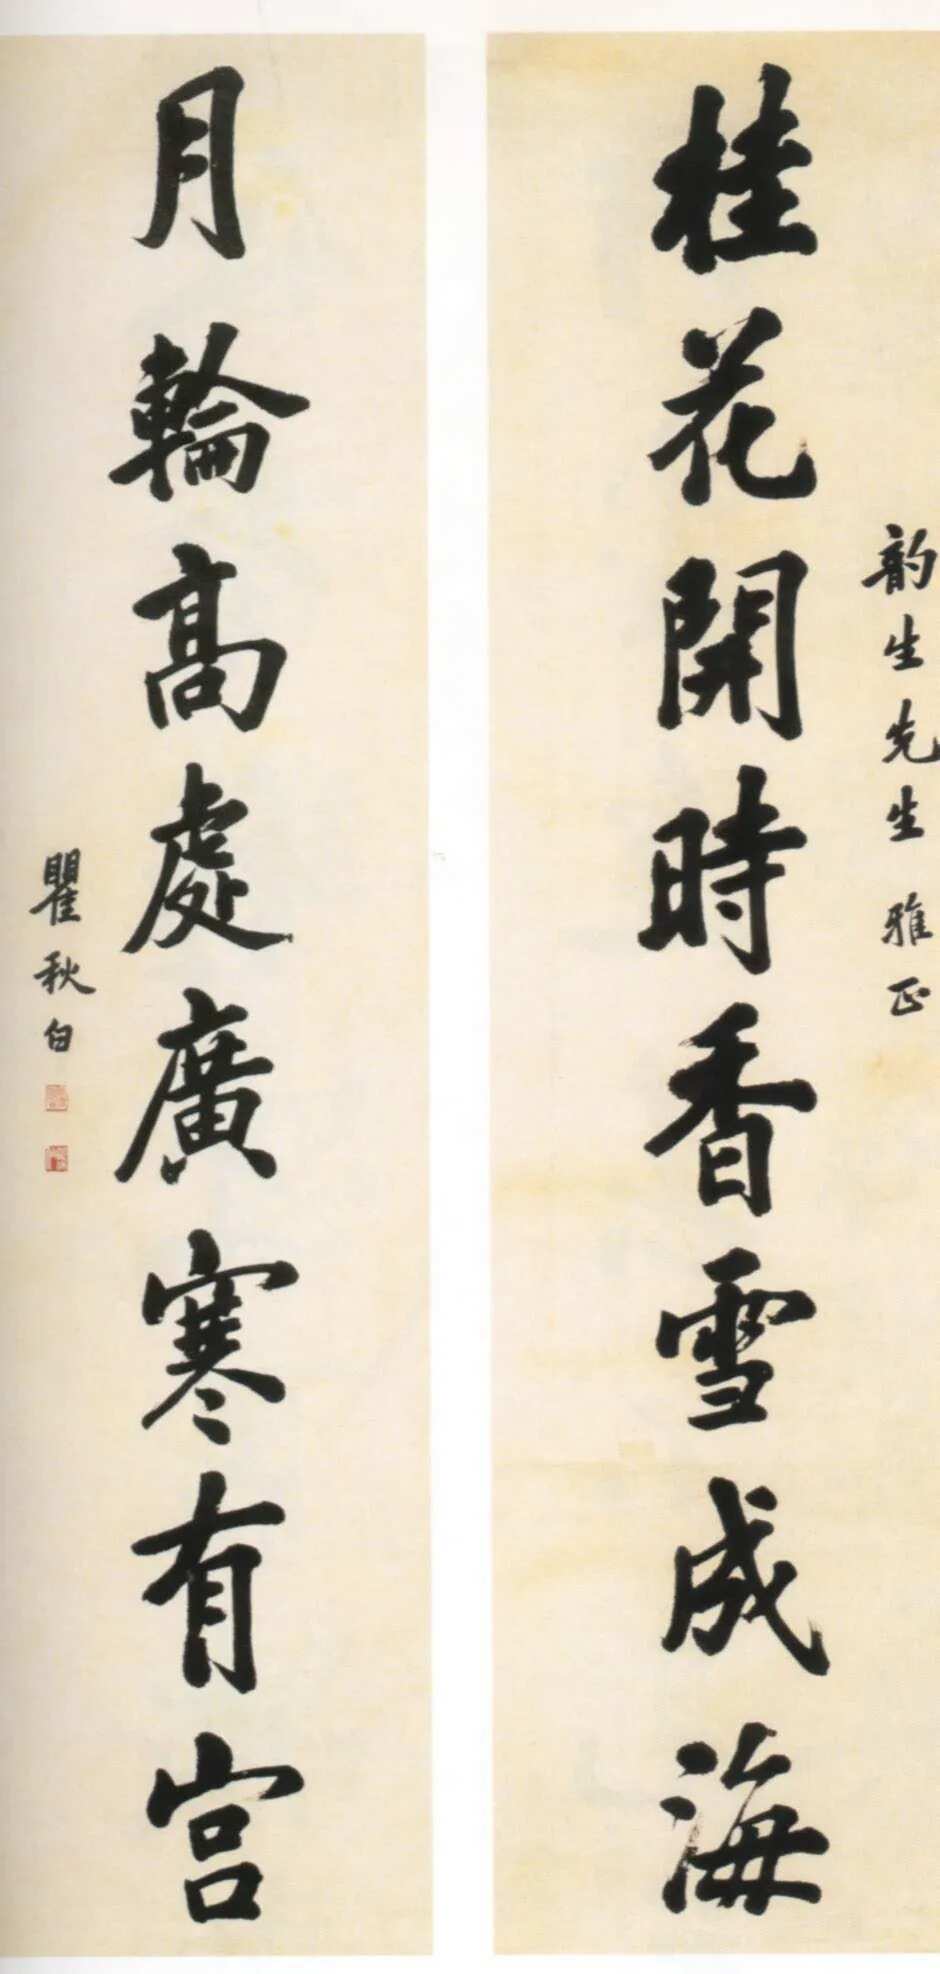 韵生先生雅正
桂花開時香雪成海
月輪高處廣寒有宮
瞿秋白